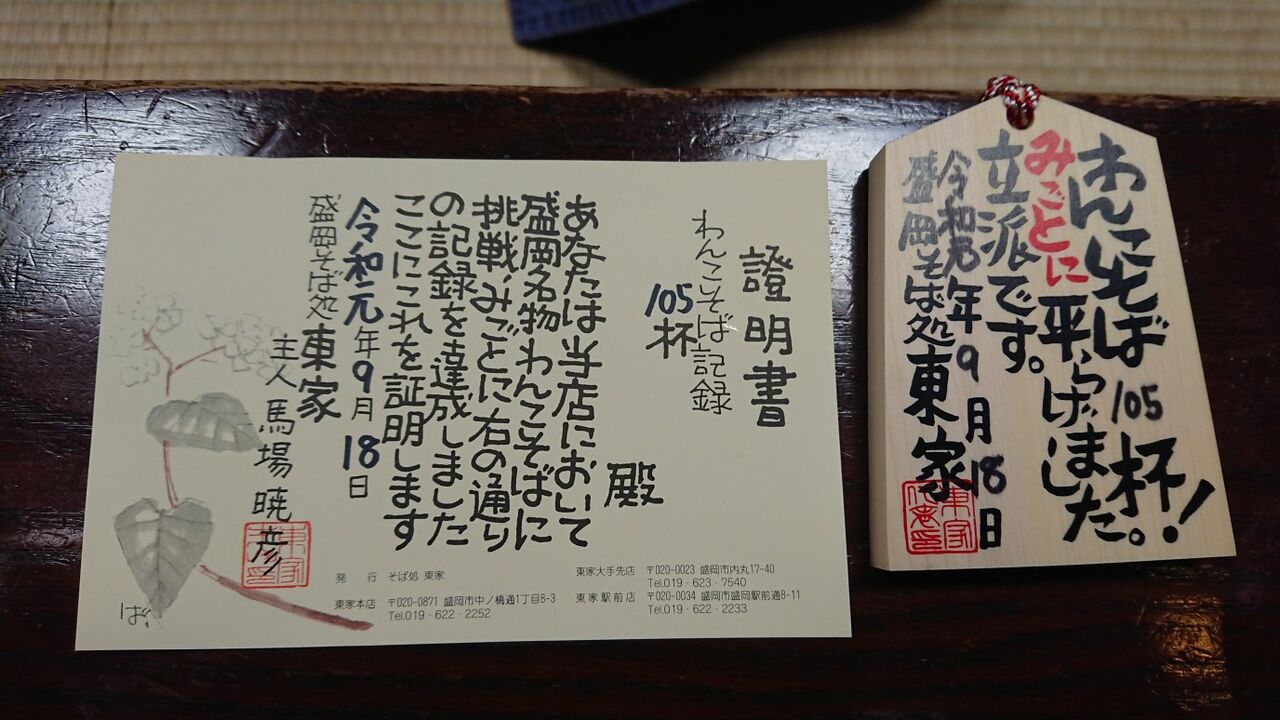 證明書
わんこそば記録
105杯
殿
あなたは当店において
盛岡名物わんこそばに
挑戦、みごとに右の通り
の記録を達成しました
ここにこれを証明します
令和元年9月18日
盛岡そば処 東家
主人 馬場暁彦
東家
ば、
発 行 そば処 東家
東家本店 〒020-0871 盛岡市中ノ橋通1丁目8-3
Tel.019・622・2252
東家大手先店 〒020-0023 盛岡市内丸17-40
Tel.019・623・7540
東家駅前店 〒020-0034 盛岡市盛岡駅前通8-11
Tel.019・622・2233
わんこそば105杯!
みごとに平らげました。
立派です。
令和元年9月18日
盛岡そば処東家
東家